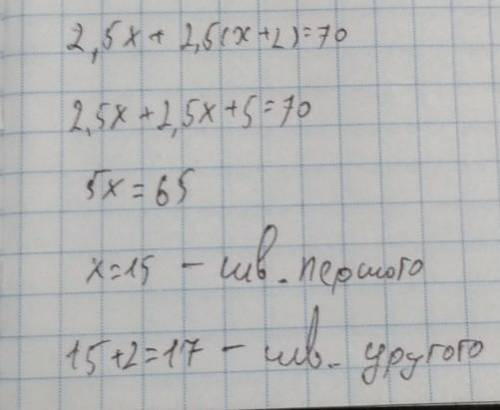 2,5x + 2,5(x+2)=70
2,5x+2,5x+5=70
5x=65
x=15 – шв. першого
15+2=17 – шв. другого